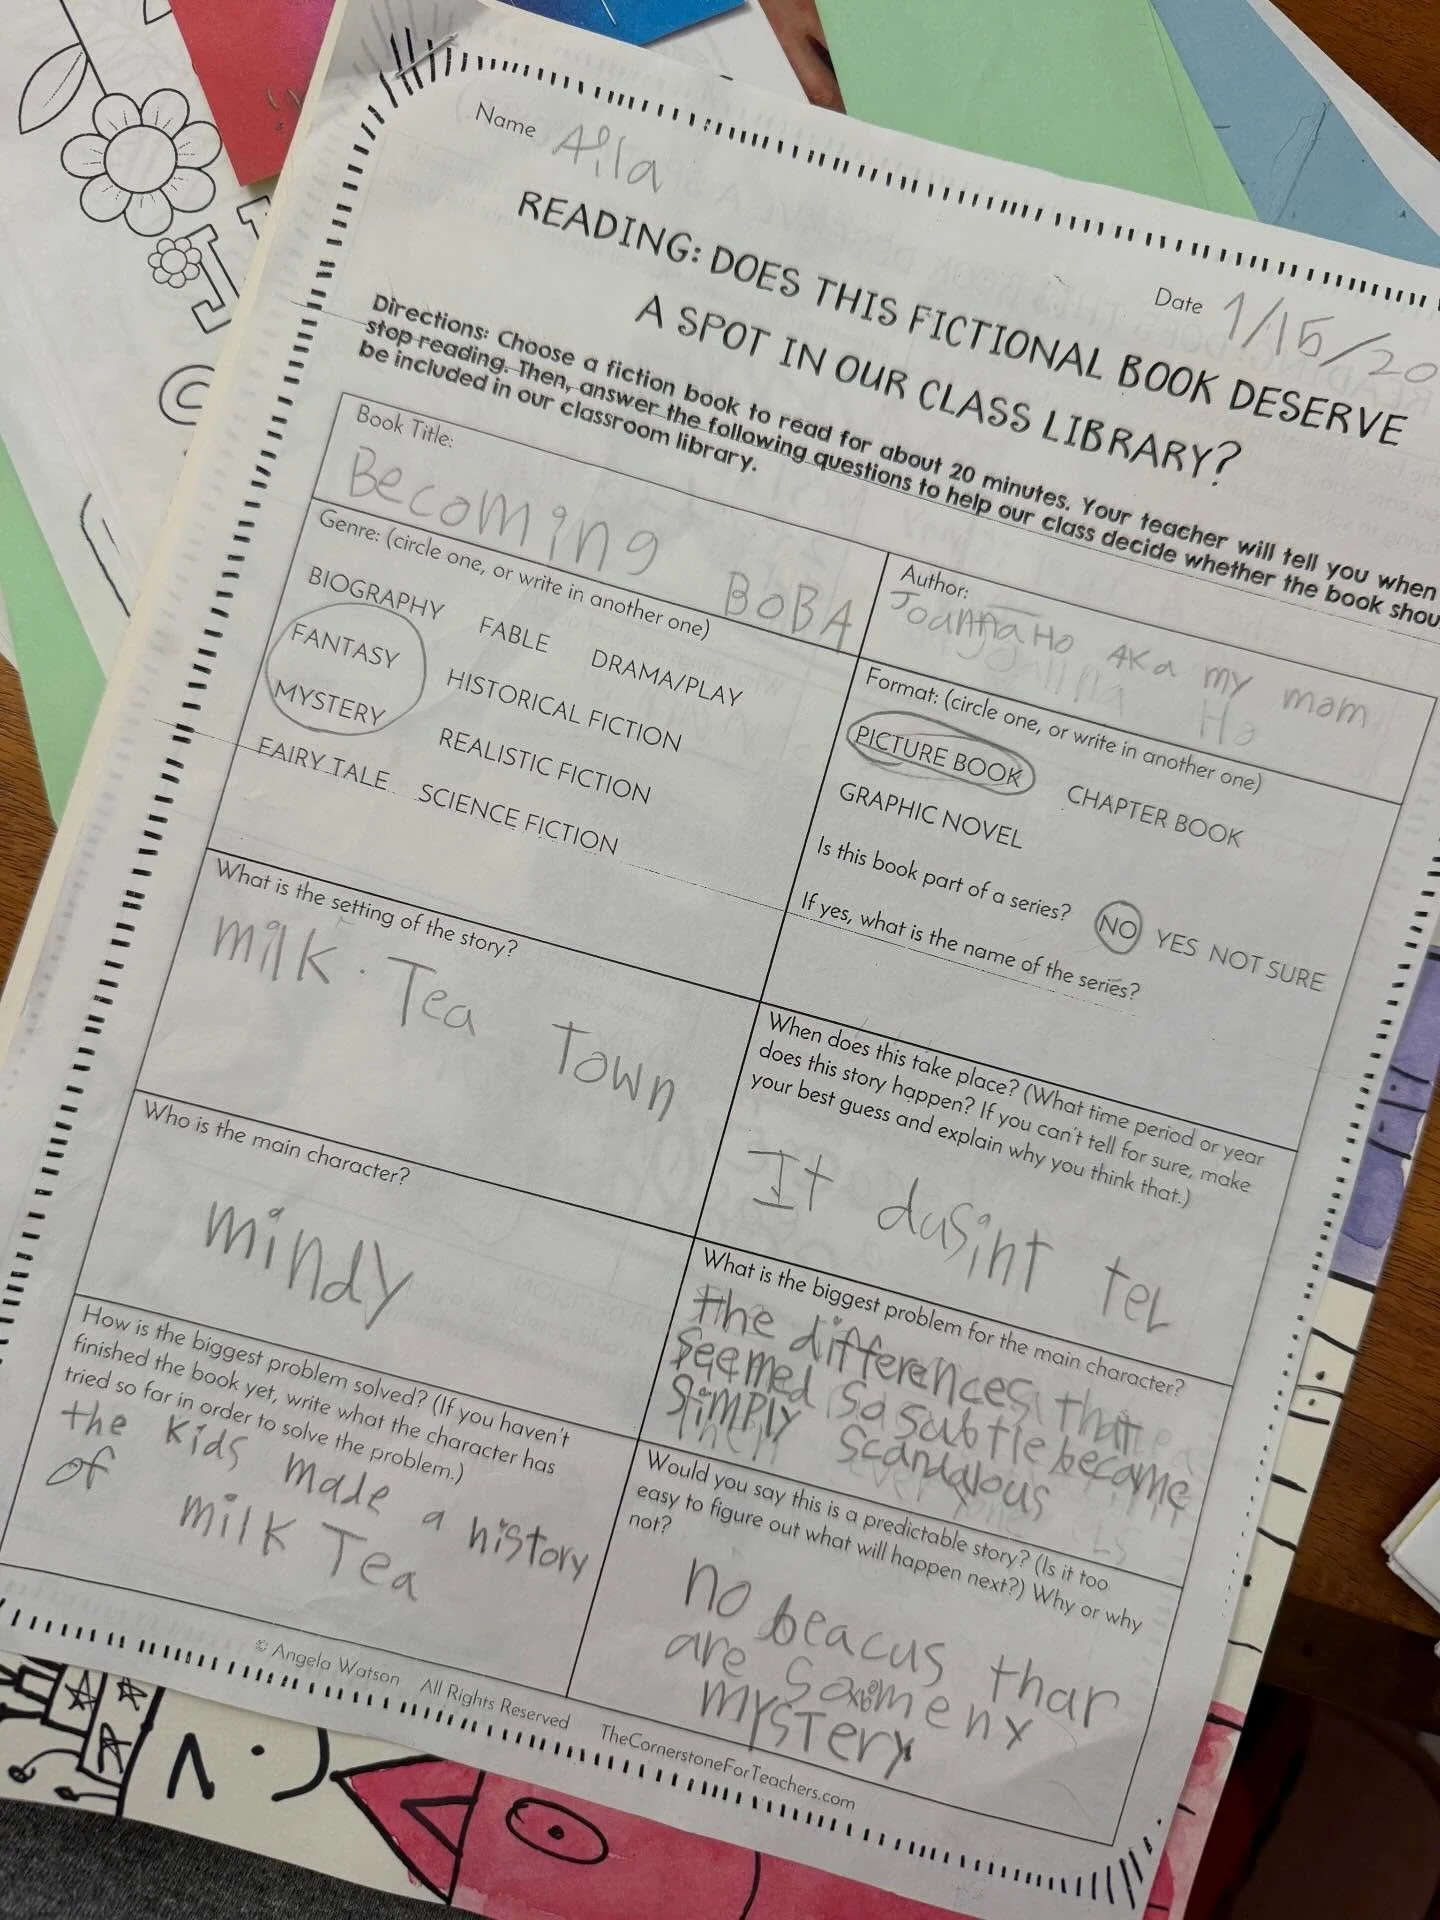 Name Aila
Date 1/15/20
READING: DOES THIS FICTIONAL BOOK DESERVE
A SPOT IN OUR CLASS LIBRARY?
Directions: Choose a fiction book to read for about 20 minutes. Your teacher will tell you when
stop reading. Then, answer the following questions to help our class decide whether the book shou
be included in our classroom library.
Book Title:
Becoming BOBA
Author:
Joanna Ho AKa my mom
Genre: (circle one, or write in another one)
BIOGRAPHY FABLE DRAMA/PLAY
FANTASY HISTORICAL FICTION
MYSTERY REALISTIC FICTION
FAIRY TALE SCIENCE FICTION
Format: (circle one, or write in another one)
PICTURE BOOK CHAPTER BOOK
GRAPHIC NOVEL
Is this book part of a series? NO YES NOT SURE
If yes, what is the name of the series?
What is the setting of the story?
milk Tea Town
When does this take place? (What time period or year
does this story happen? If you can't tell for sure, make
your best guess and explain why you think that.)
It dusint tel
Who is the main character?
mindy
What is the biggest problem for the main character?
the differences that
seemed so subtle became
simply scandalous
How is the biggest problem solved? (If you haven't
finished the book yet, write what the character has
tried so far in order to solve the problem.)
the kids made a history
of milk Tea
Would you say this is a predictable story? (Is it too
easy to figure out what will happen next?) Why or why
not?
no beacus thar
are so meny
mystery
© Angela Watson All Rights Reserved TheCornerstoneForTeachers.com